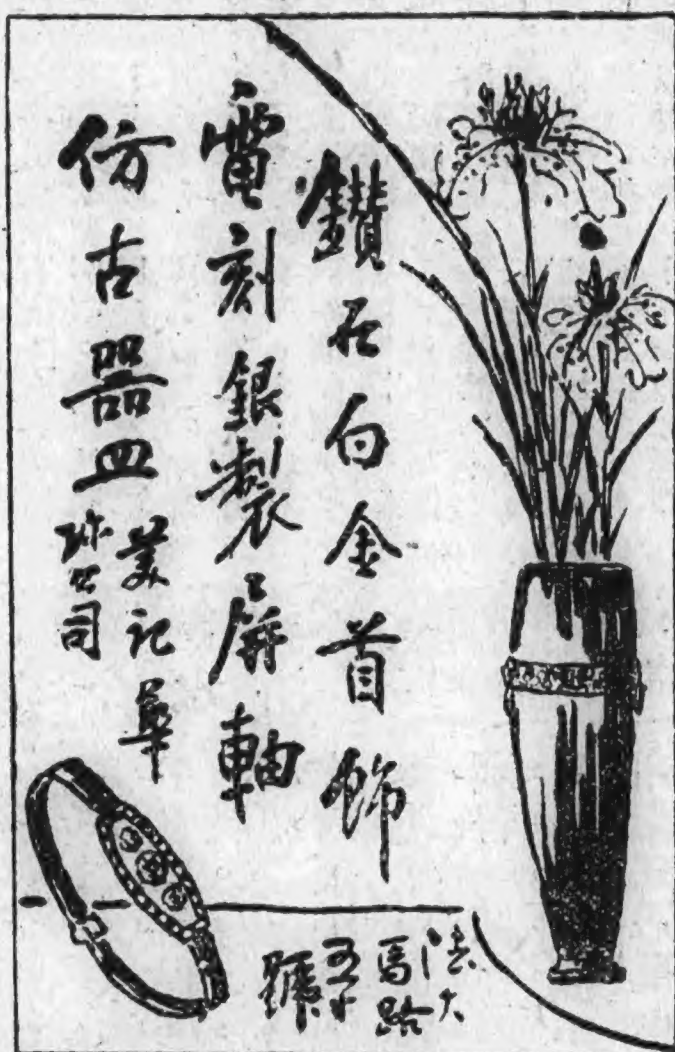 鑽石白金首飾
電刻銀製屏軸
仿古器皿
美記華
珍公司
法大
馬路
五十
號